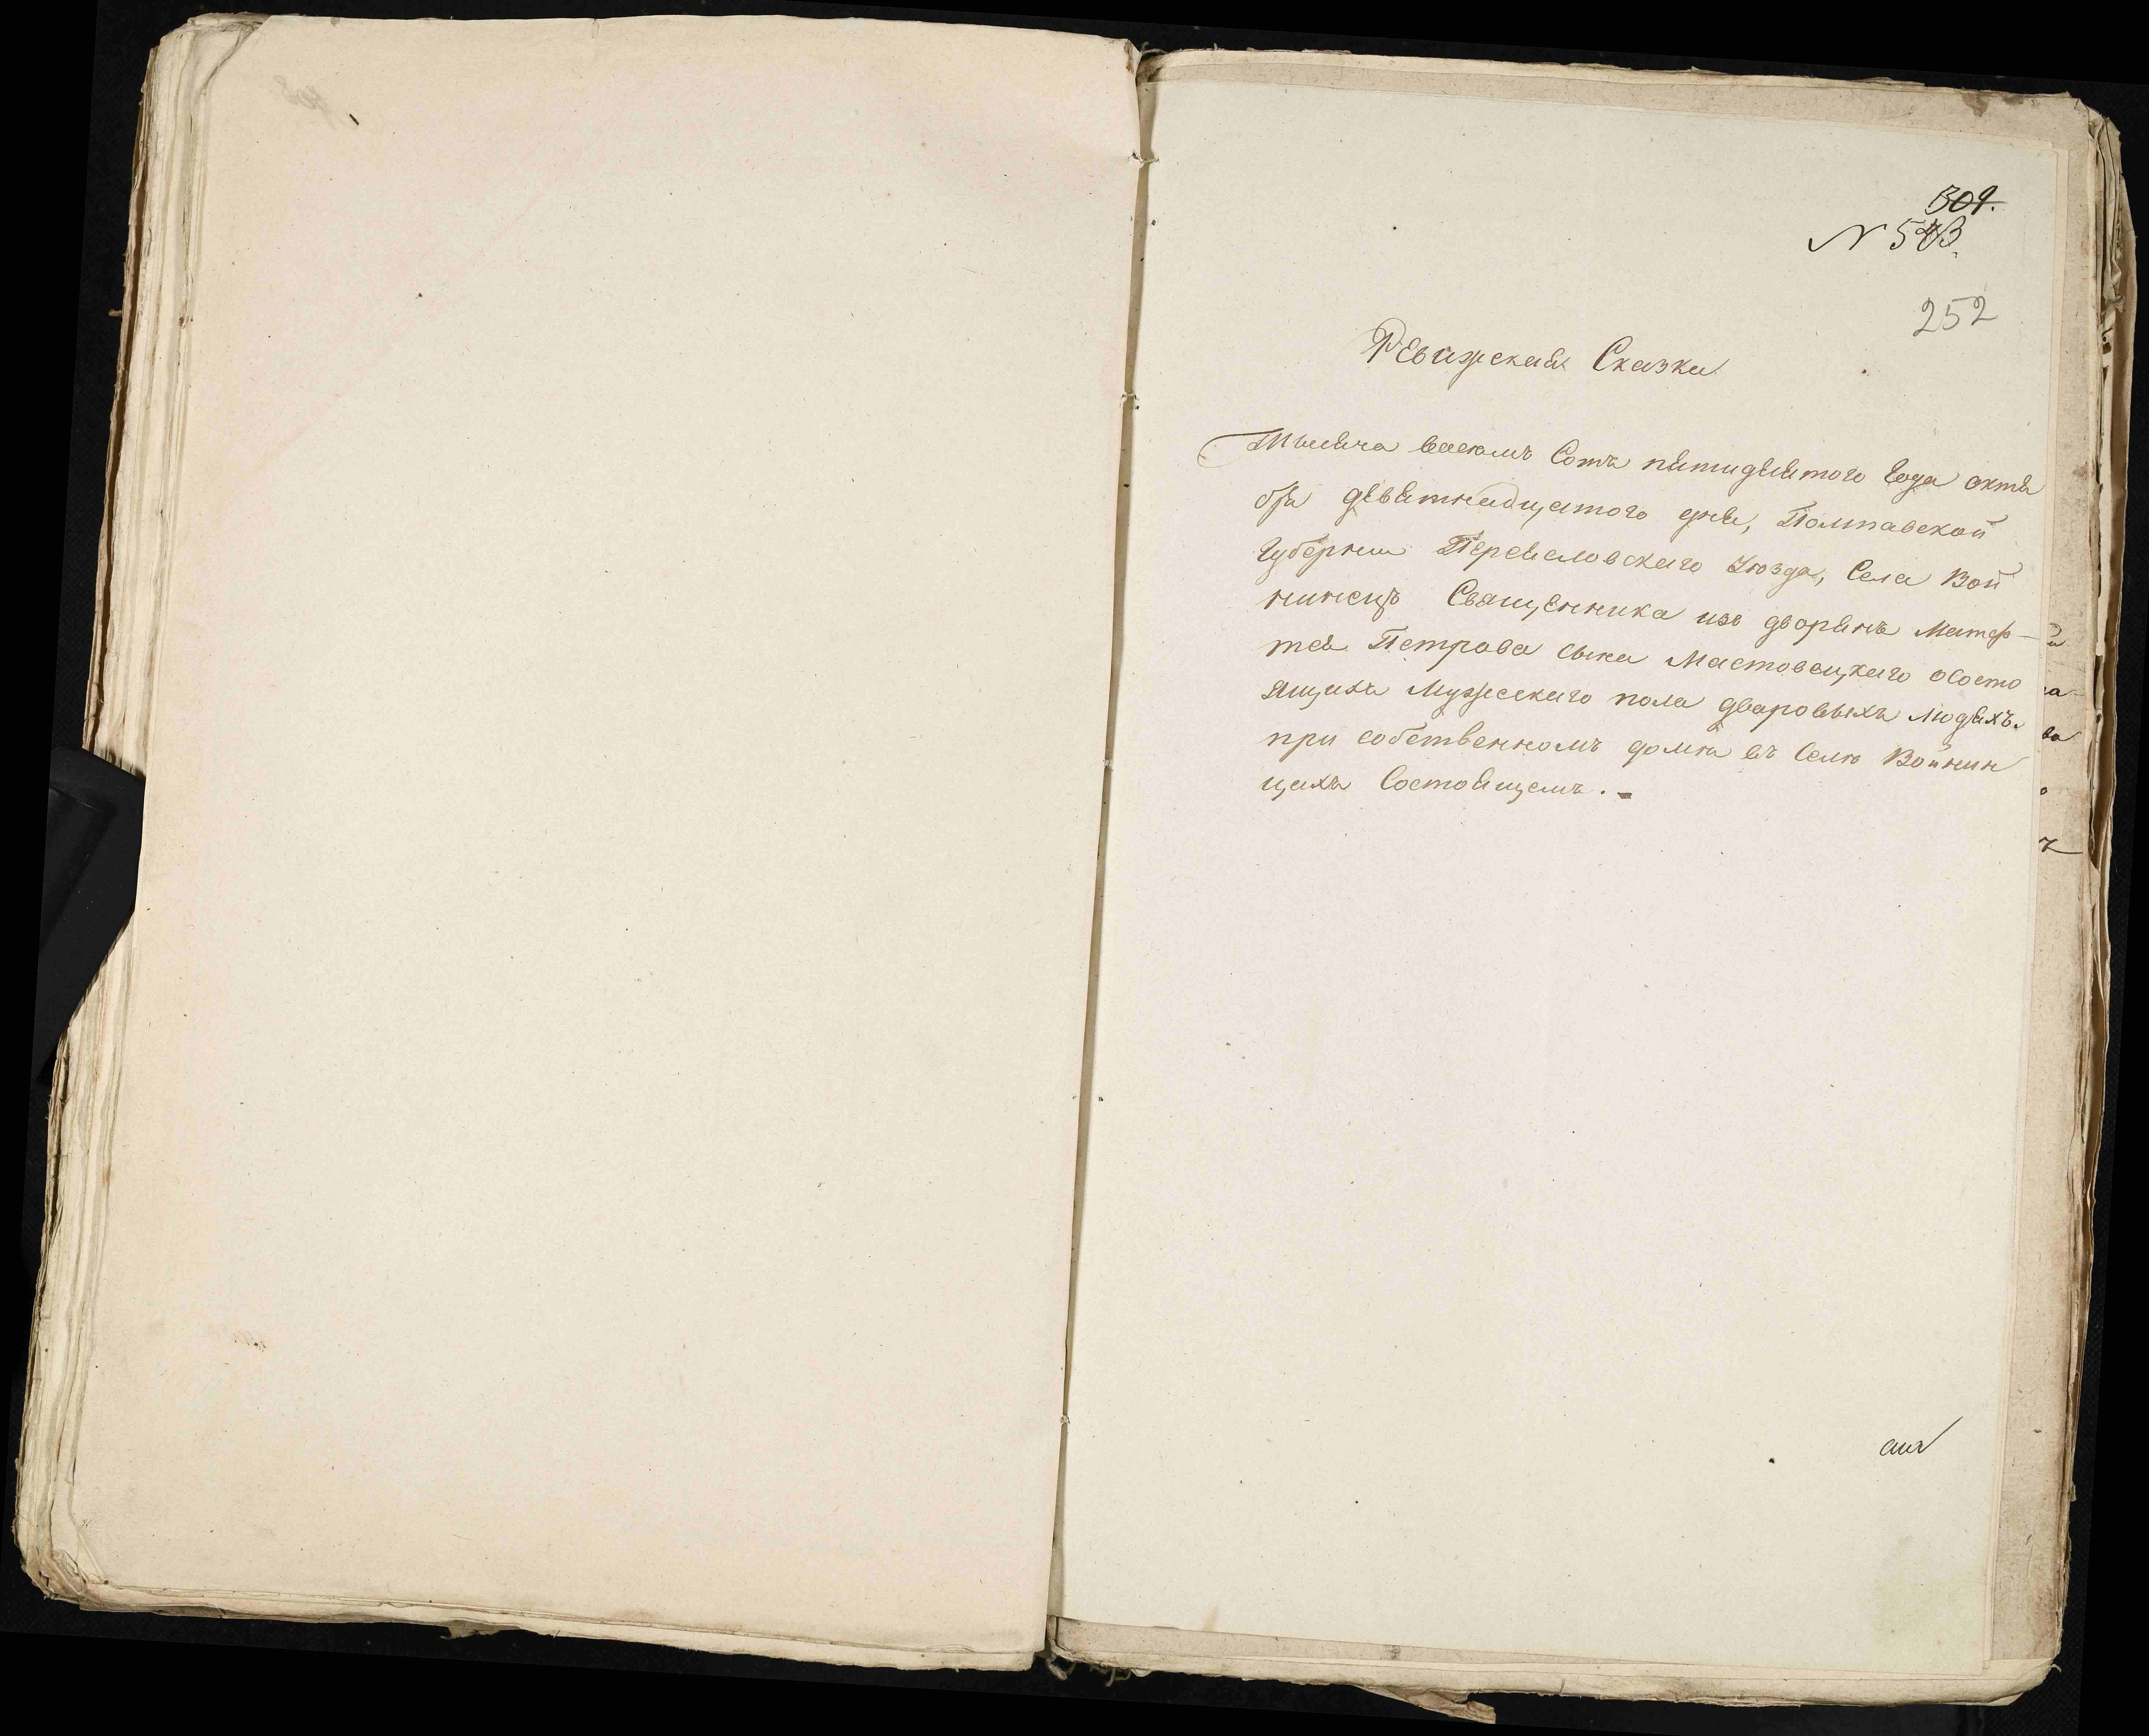 309.
N 503.
252
Ревижская Сказка
Тысяча восемъ Сотъ пятидесятого Года октя
бра девятнадцатого дня, Полтавской
Губернии Переяславского Уѣзда, Села Вой
нинецъ Священника изъ дворянъ Матф-
тея Петрова сына Мастовецкаго ососто
ящихъ Мужескаго пола дворовыхъ людяхъ.
при собственномъ домѣ въ Селѣ Войнин
цахъ Состоящемъ.